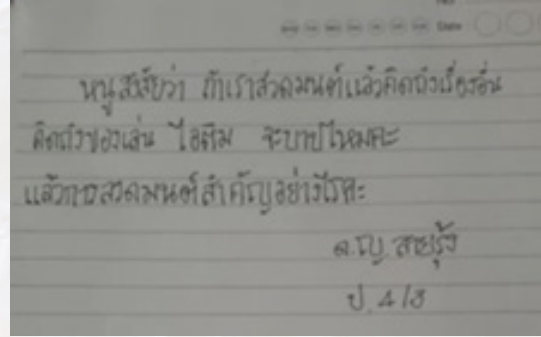 หนูสงสัยว่า ถ้าเราสวดมนต์แล้วคิดถึงเรื่องอื่น
คิดถึงของเล่น ไอติม จะบาปไหมคะ
แล้วการสวดมนต์สำคัญอย่างไรคะ
ด.ญ. สายรุ้ง
ป. 4/3
Date